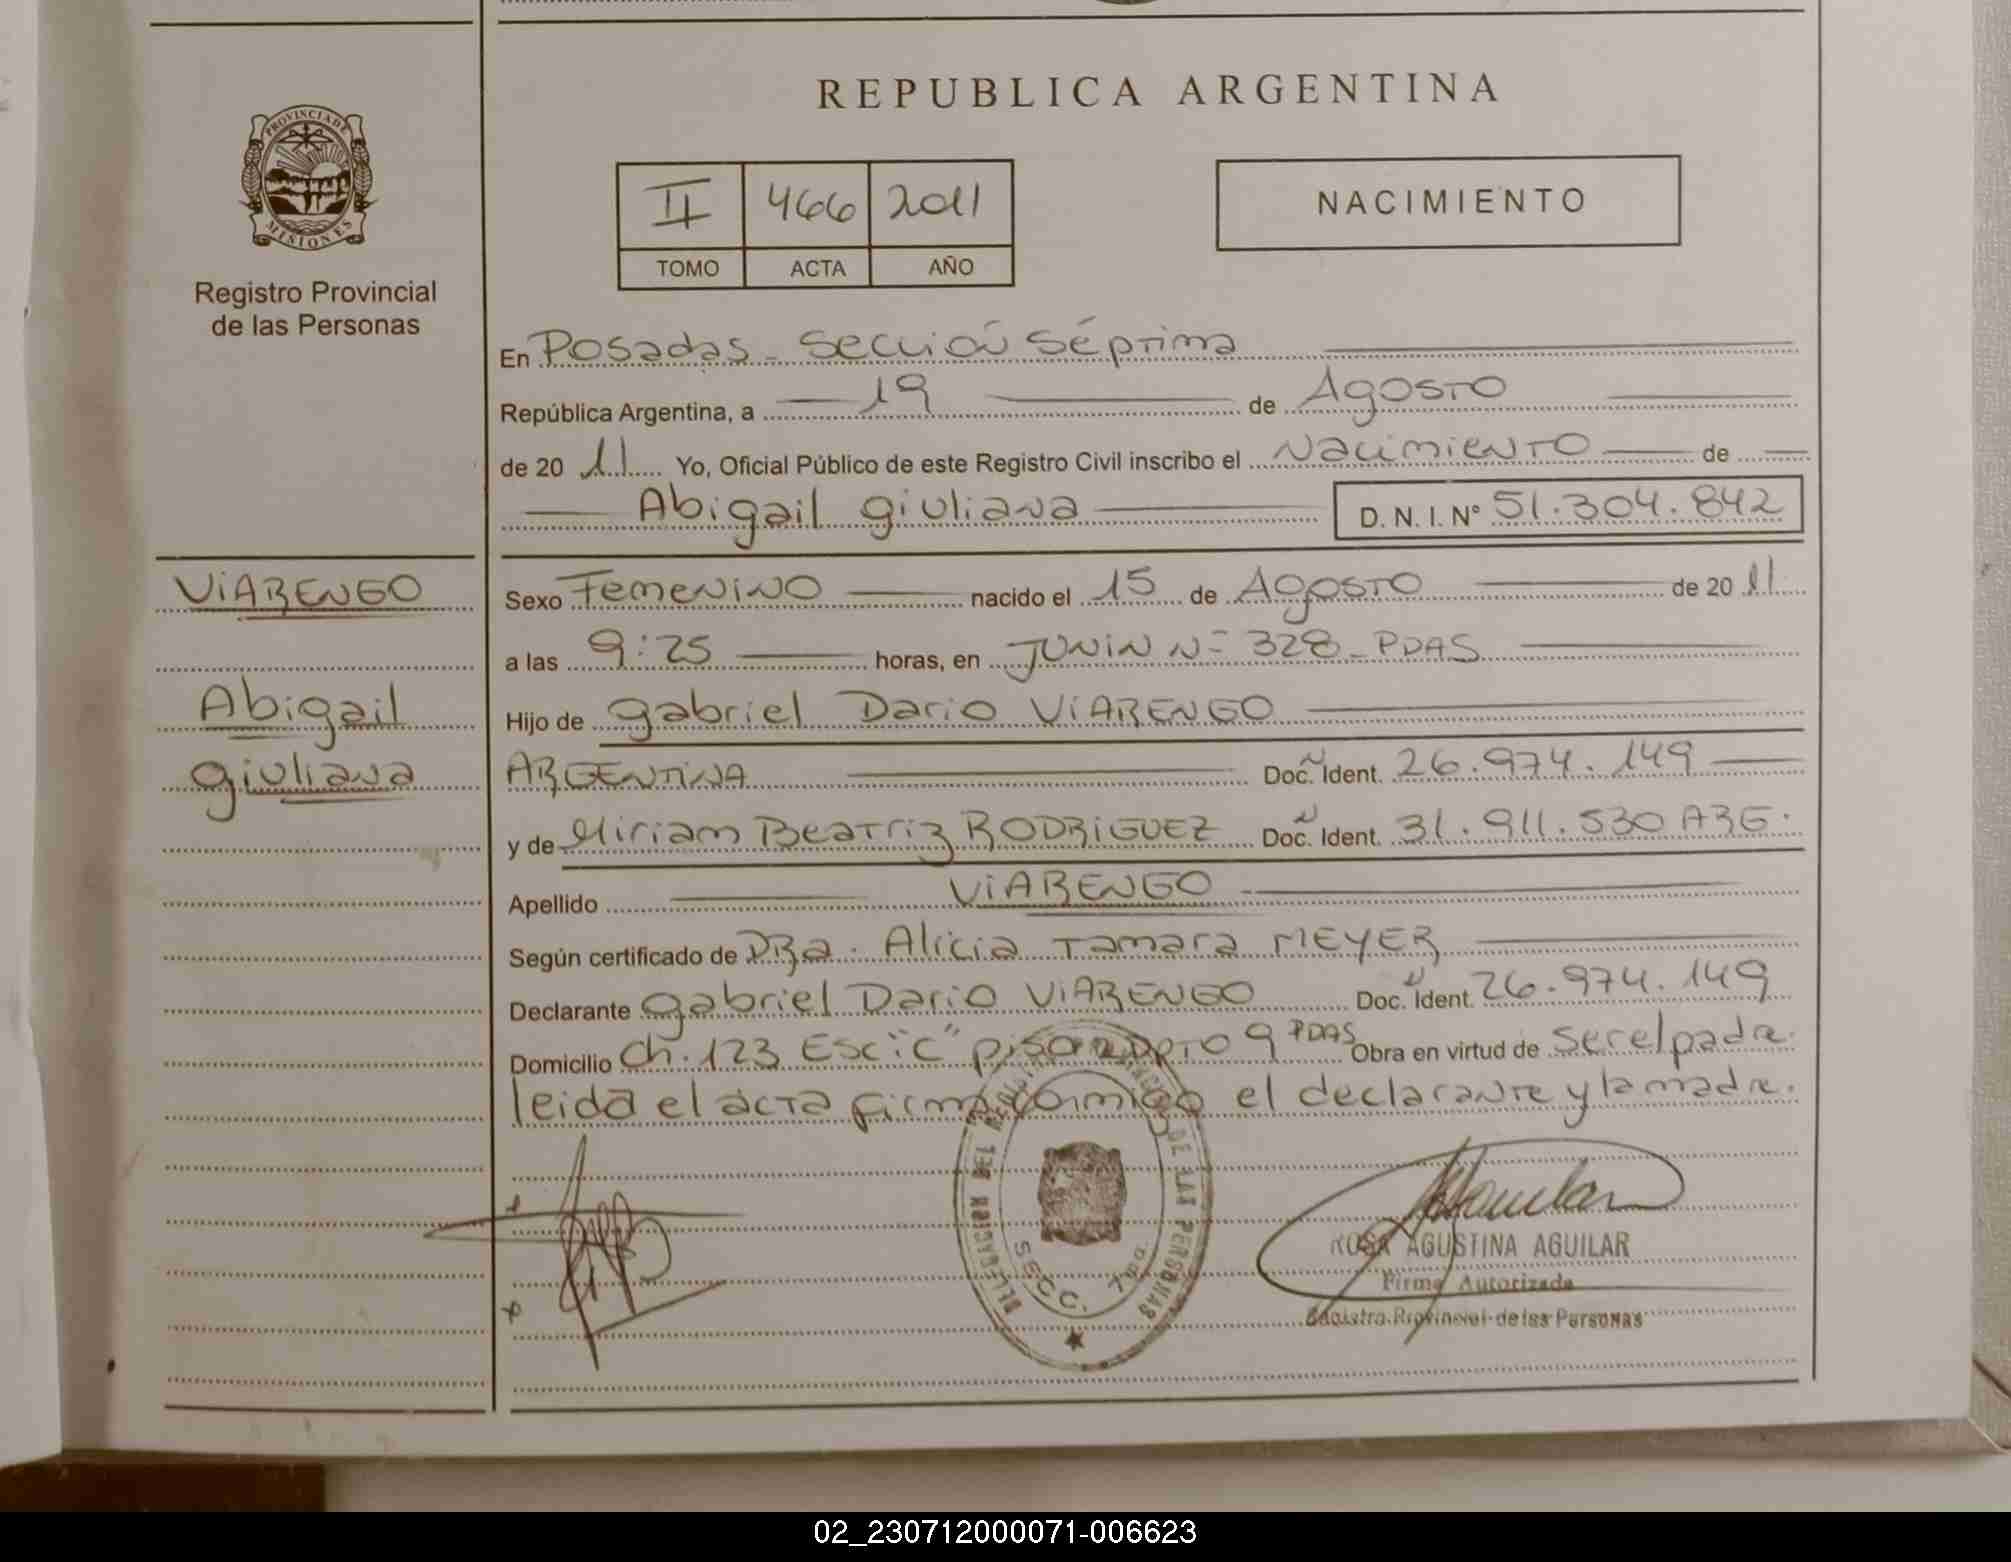 REPUBLICA ARGENTINA
PROVINCIA DE
MISIONES
Registro Provincial
de las Personas
II 466 2011
TOMO ACTA AÑO
NACIMIENTO
En Posadas - Sección Séptima
República Argentina, a 19 de Agosto
de 20 11 Yo, Oficial Público de este Registro Civil inscribo el Nacimiento de
Abigail giuliana D. N. I. N° 51.304.842
VIARENGO
Abigail
giuliana
Sexo Femenino nacido el 15 de Agosto de 20 11
a las 9:25 horas, en JUNIN N- 328 - PDAS
Hijo de gabriel Dario VIARENGO
ARGENTINA Doc. Ident. 26.974.149
y de Miriam Beatriz RODRIGUEZ Doc. Ident. 31.911.530 ARG.
Apellido VIARENGO
Según certificado de DRa. Alicia Tamara MEYER
Declarante gabriel Dario VIARENGO Doc. Ident. 26.974.149
Domicilio Ch. 123 Esc "C" piso 2 Dpto 9 PDAS Obra en virtud de ser el padre.
leida el acta firma conmigo el declarante y la madre.
DELEGACION DEL REGISTRO DE LAS PERSONAS
SECC. 7ma.
ROSA AGUSTINA AGUILAR
Firma Autorizada
Registro Provincial de las Personas
02_230712000071-006623